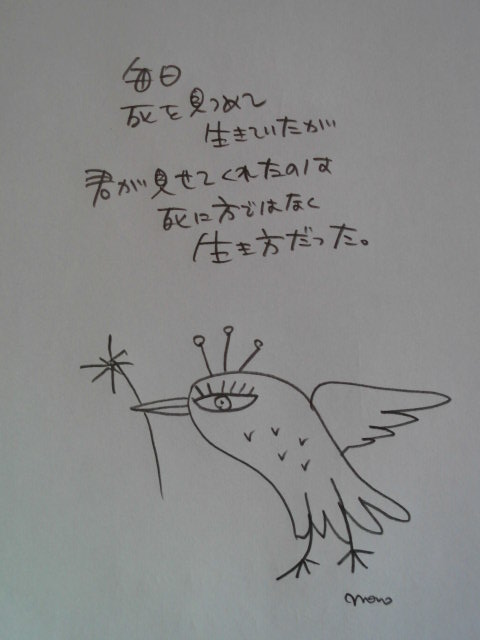 毎日
死を見つめて
生きていたが
君が見せてくれたのは
死に方ではなく
生き方だった。
momo